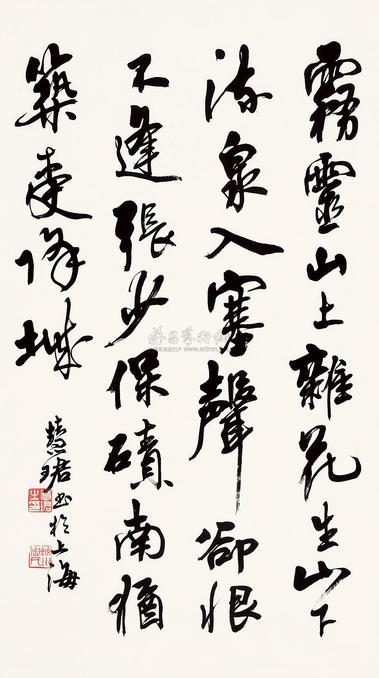 霧靈山上雜花生山下
流泉入塞聲卻恨
不逢張少保磧南猶
築受降城
慧珺书於上海